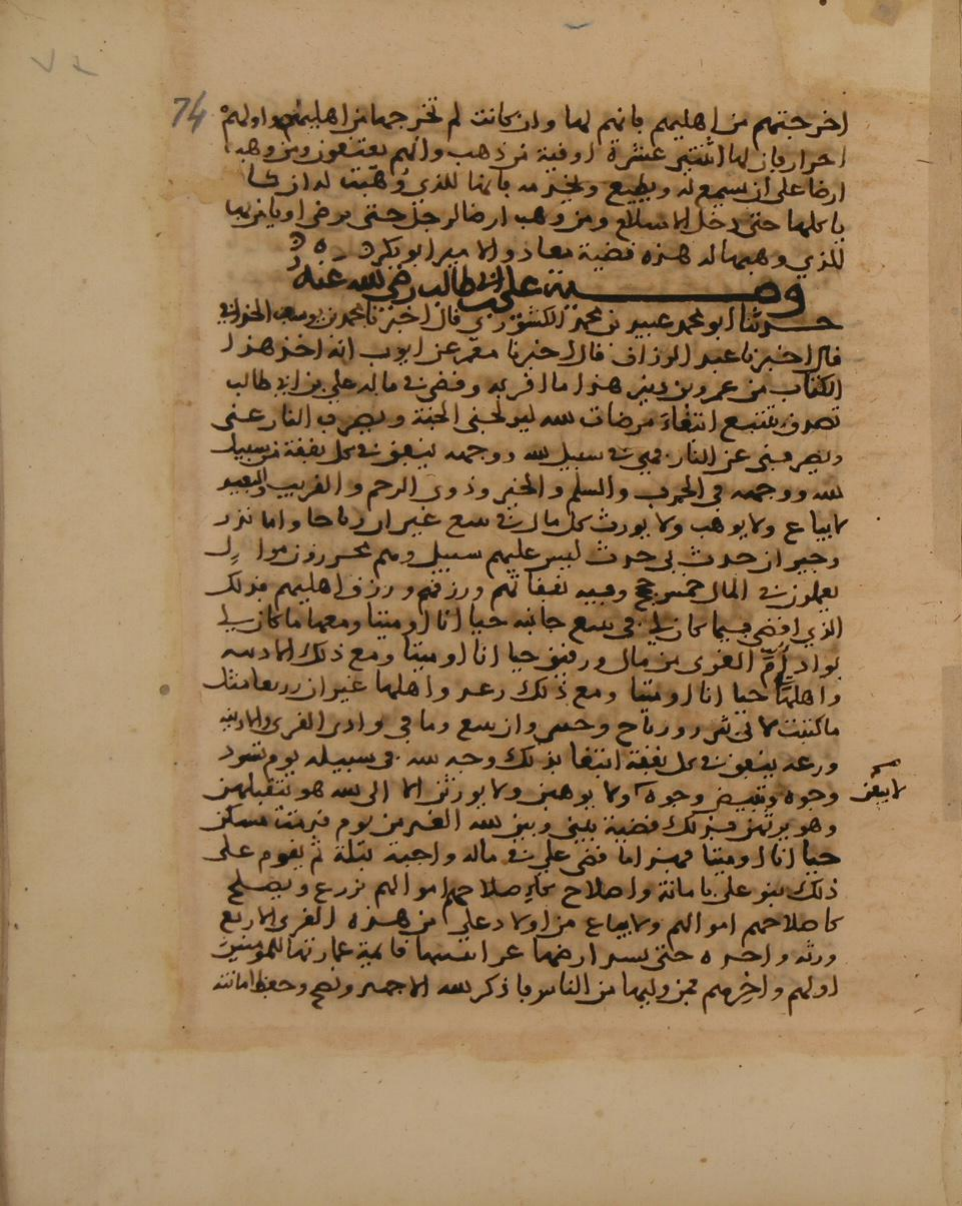 74
اخرجتهم من اهليهم فانهم لها وان كانت لم تخرجها من اهليهم واولهم
احرار فان لها اثنتي عشرة اوقية من ذهب وانهم يعتقون ومن وهب
ارضا على ان يسمع له ويطيع ويخدمه فانها للذي وهبت له ان كا
ياكلها حتى دخل الاسلام ومن وهب ارضا لرجل حتى يرضى او يامر بها
للذي وهبها له هذه قضية معاذ والامير ابو بكر
وصية علي بن ابي طالب رضي الله عنه
حدثنا ابو محمد عبيد بن محمد الكشوري قال اخبرنا محمد بن يوسف الحذاقي
قال اخبرنا عبد الرزاق قال اخبرنا معمر عن ايوب انه اخذ هذا
الكتاب من عمرو بن دينر هذا ما اقر به وقضى في ماله علي بن ابي طالب
تصدق بينبع ابتغاء مرضات الله ليولجني الجنة ويصرف النار عني
ويصرفني عن النار فهي في سبيل الله ووجهه ينفق في كل نفقة من سبيل
الله ووجهه في الحرب والسلم والخير وذوي الرحم والقريب والبعيد
لا يباع ولا يوهب ولا يورث كل مال في ينبع غير ان رباحا وابا نيزر
وجبير ان حدث بي حدث ليس عليهم سبيل وهم محررون موالي
يعملون في المال خمس حجج وفيه نفقاتهم ورزقهم ورزق اهليهم فذلك
الذي اقضي فيما كان لي في ينبع جانبه حيا انا او ميتا ومعها ما كان لي
بواد ام القرى من مال ورقيق حيا انا او ميتا ومع ذلك الادينة
واهلها حيا انا او ميتا ومع ذلك رعد واهلها غير ان زريقا مثل
ما كتبت لابي نيزر ورباح وجبير وان ينبع وما في وادي القرى والادينة
ورعد ينفق في كل نفقة ابتغا بذلك وجه الله في سبيله يوم تسود
وجوه وتبيض وجوه ولا يوهبن ولا يورثن الا الى الله هو يتقبلهن
لا يبعن
وهو يرثهن فذلك قضية بيني وبين الله الغد من يوم قدمت مسكن
حيا انا او ميتا فهذا ما قضى علي في ماله واجبة بتلة ثم يقوم على
ذلك بنو علي بامانة واصلاح كاصلاحهم اموالهم يزرع ويصلح
كاصلاحهم اموالهم ولا يباع من اولاد علي من هذه القرى الاربع
ودية واحده حتى يسد ارضها غراسها قائمة عمارتها للمومنين
اولهم واخرهم فمن وليها من الناس فاذكر الله الا جهد ونصح وحفظ امانته